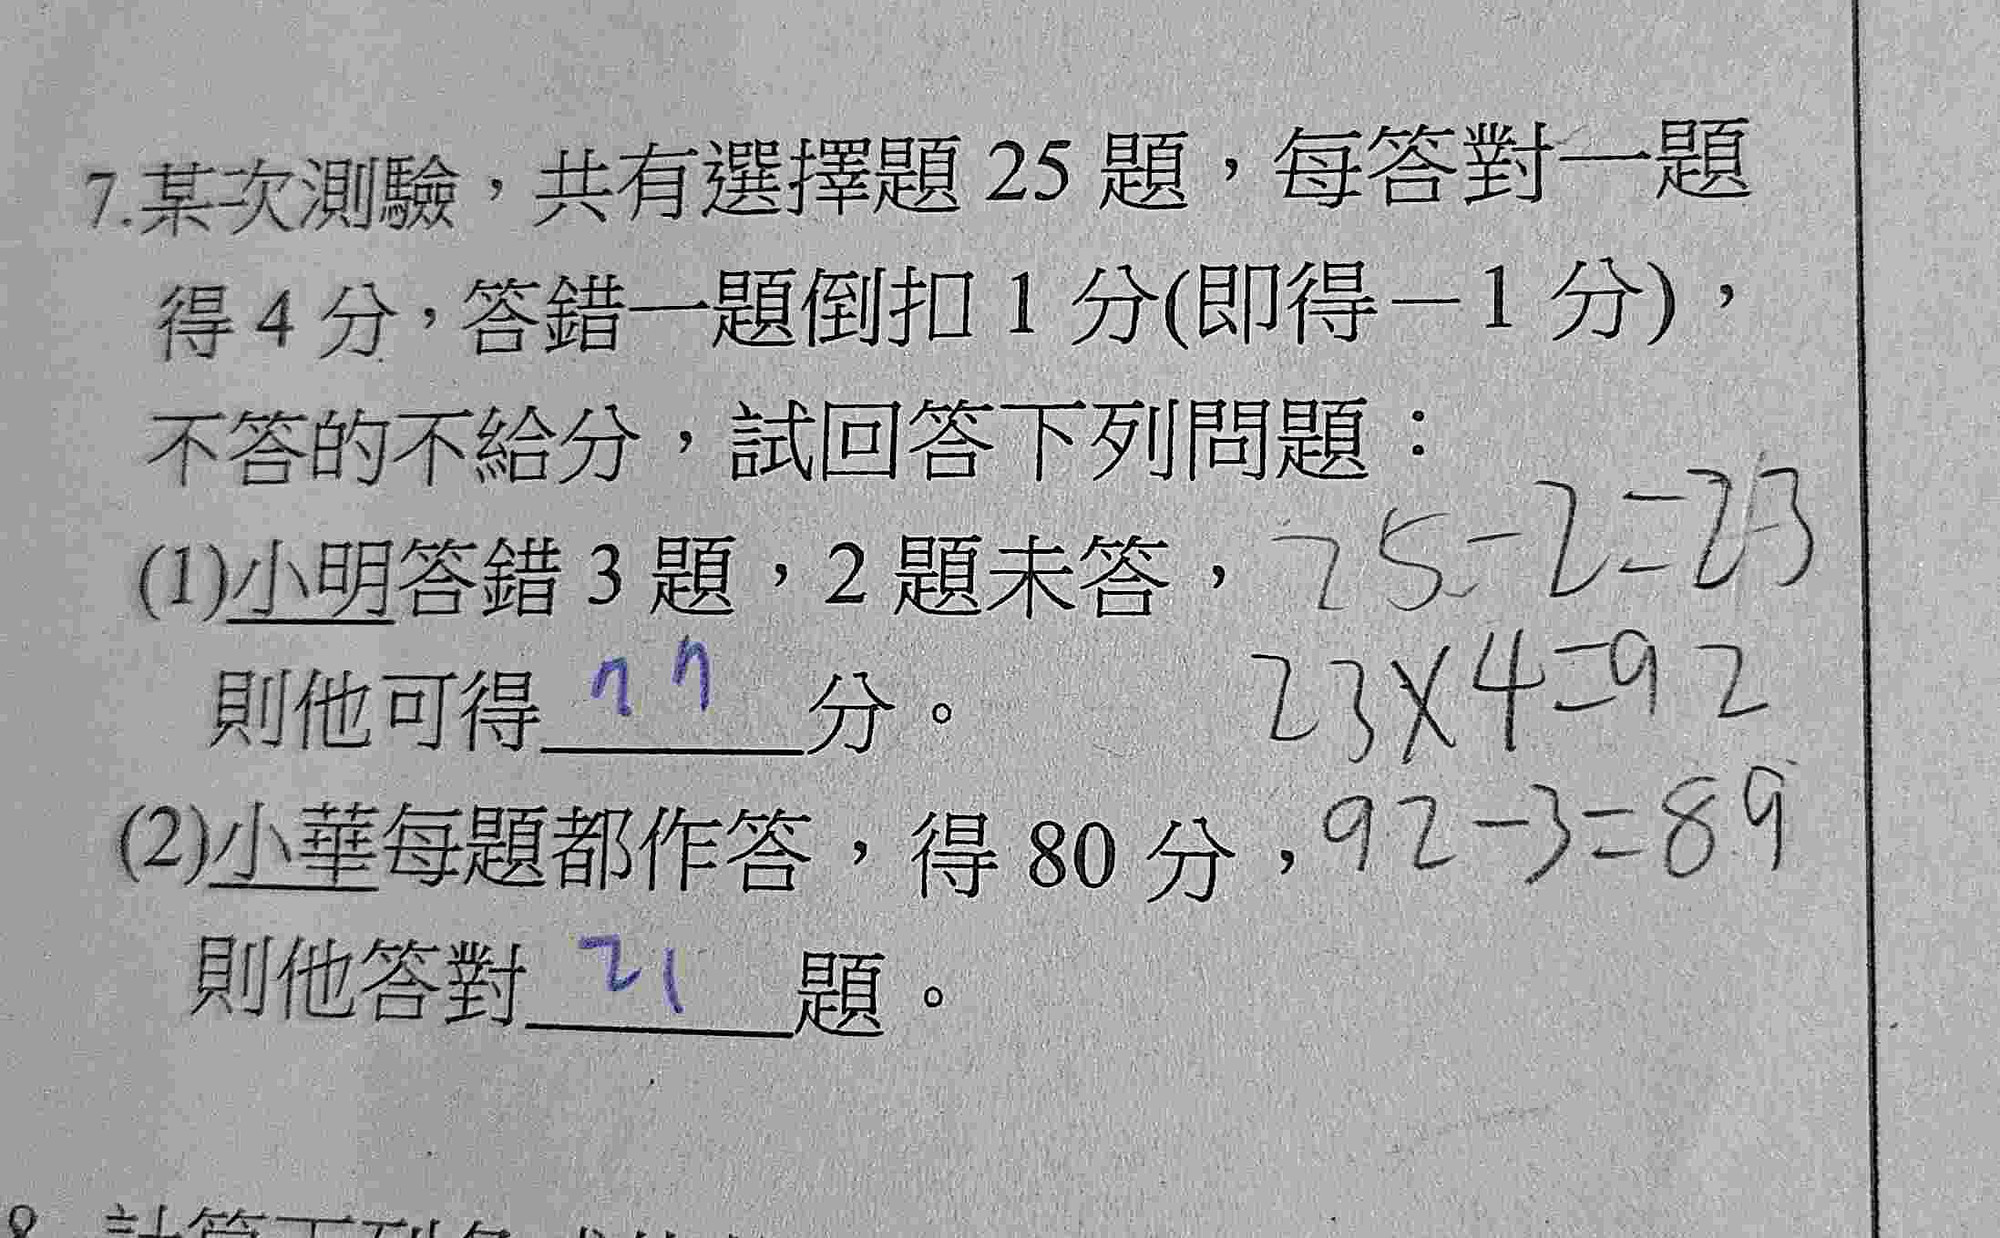 7.某次測驗，共有選擇題 25 題，每答對一題
得 4 分，答錯一題倒扣 1 分(即得－1 分)，
不答的不給分，試回答下列問題：
(1)小明答錯 3 題，2 題未答，
25-2=23
則他可得 77 分。
23×4=92
(2)小華每題都作答，得 80 分，
92-3=89
則他答對 21 題。